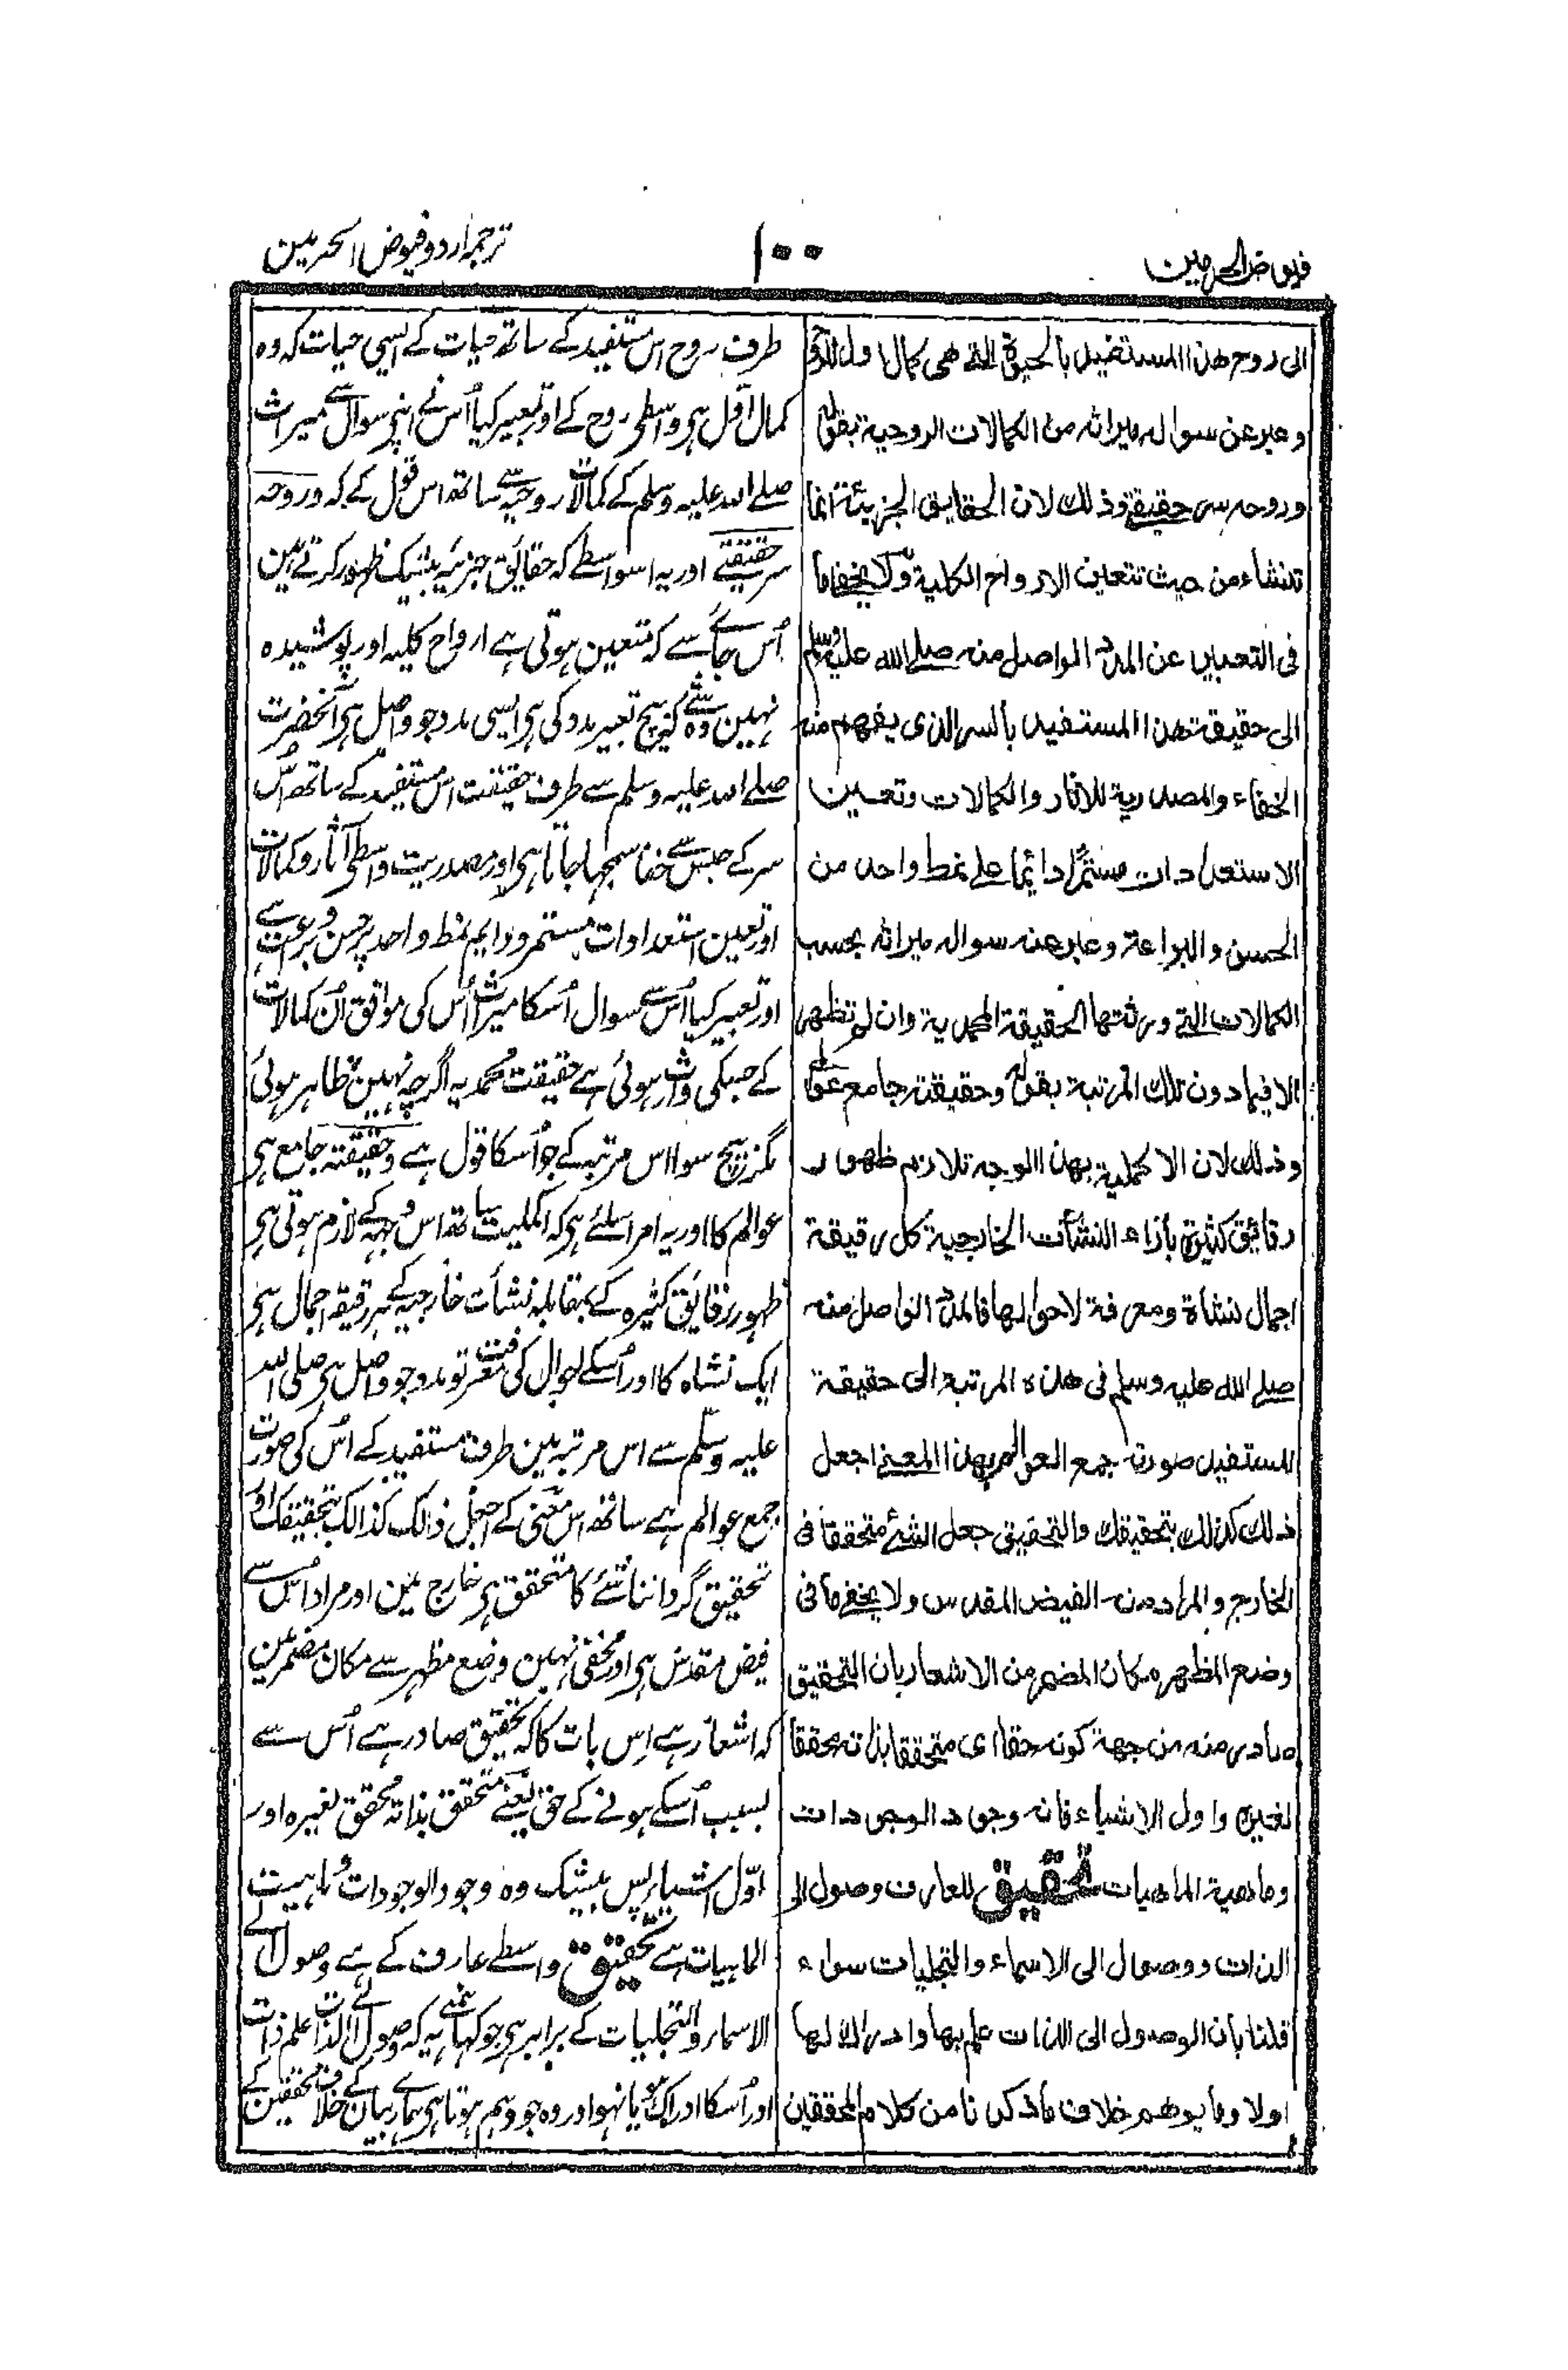 فیوض الحرمین
١٠٠
ترجمہ اردو فیوض الحرمین
الى روح هذا المستفيد بالحيوة التے هى كمال اول للروح
و عبر عن سواله ميراثه من الكمالات الروحية بقوله
وروحه سر حقيقتے وذلك لان الحقايق الجزيئة انما
تنشاء من حيث تتعين الارواح الكلية ولا يخفے ما
فى التعبير عن المدد المواصل منه صلے الله عليه وسلم
الى حقيقت هذا المستفيد بالسر الذى يفهم منه
الخفاء والمصدرية للاثار والكمالات وتعين
الاستعدادات مستمرًا دائما علے نمط واحد من
الحسن والبراعة وعبر عنه سواله ميراثه بحسب
الكمالات التے ورثتها الحقيقة المحمدية وان لم تظهر
الا فيما دون تلك المرتبة بقوله وحقيقته جامع عوالمى
وذلك لان الاكملية بهذا الوجه تلازم ظهور
رقائيق كثيرة بأزاء النشأت الخارجية كل رقيقة
اجمال نشاة ومعرفة لاحوالها فالمدد الواصل منه
صلے الله عليه وسلم فى هذه المرتبة الى حقيقة
المستفيد صورته جمع العوالم بهذا المعنے اجعل
ذلك كذلك بتحقيقك والتحقيق جعل الشئے متحققا فى
الخارج والمراد منه الفيض المقدس ولا يخفے ما فى
وضع المظهر مكان المضمر من الاشعار بان التحقيق
صادر منه من جهة كونه حقا اى متحققا بذاته محققا
لغيره واول الاشياء فانه وجود الوجودات
وماهية الماهيات تحقيق للعارف وصول الى
الذات ووصول الى الاسماء والتجليات سواء
قلنا بان الوصول الى الذات علم بها وادراك لها
اولا وما يوهم خلاف ما ذكرنا من كلام المحققين
طرف روح اس مستفید کے ساتھ حیات کے ایسی حیات کہ وہ
کمال اول ہی واسطے روح کے اور تعبیر کیا اُس نے اپنی سوال سے میراث
صلے اللہ علیہ وسلم کے کمالات روحیہ سے ساتھ اس قول کے کہ وروحہ
سر حقیقتے اور یہ اسواسطے کہ حقائق جزئیہ بیشک ظہور کرتے ہین
اُس جاے سے کہ متعین ہوتی ہے ارواح کلیہ اور پوشیدہ
نہین وہ شے کہ بیچ تعبیر مدد کی ہی ایسی مدد جو واصل ہی آنحضرت
صلے اللہ علیہ وسلم سے طرف حقیقت اس مستفید کے ساتھ اس
سر کے جس سے خفا سمجھا جاتا ہی اور مصدریت واسطے آثار و کمالات
اور تعین استعدادات مستمر و دایم نمط واحد پر حسن و براعت سے
اور تعبیر کیا اُس سے سوال اُسکا میراث اُس کی موافق اُن کمالات
کے جسکی وارث ہوئی ہے حقیقت محمدیہ اگرچہ نہین ظاہر ہوئی
مگر بیچ سوا اس مرتبہ کے جو اُسکا قول ہے وحقیقتہ جامع ہی
عوالم کا اور یہ امر اسلئے ہی کہ اکملیت ساتھ اس وجہہ کے لازم ہوتی ہی
ظہور رقایق کثیرہ کے بمقابلہ نشأت خارجیہ کے ہر رقیقہ اجمال ہی
ایک نشاہ کا اور اُسکے احوال کی معرفت تو مدد جو واصل ہی صلی اللہ
علیہ وسلّم سے اس مرتبہ مین طرف مستفید کے اُس کی صورت
جمع عوالم ہے ساتھ اس معنی کے اجعل ذالک کذالک بتحقیقک اور
تحقیق گرداننا شئے کا متحقق ہی خارج مین اور مراد اُس سے
فیض مقدس ہی اور مخفی نہین وضع مظہر سے مکان مضمر مین
کہ اشعار ہے اِس بات کا کہ تحقیق صادر ہے اُس سے
بسبب اُسکے ہونے کے حق یعنے متحقق بذاتہ محقق لغیرہ اور
اوّل اشیا پس بیشک وہ وجود الوجودات و ماہیت
الماہیات ہے تحقیق واسطے عارف کے ہے وصول الے
الاسماء والتجلیات کے برابر ہی جو کہا ہمنے یہ کہ وصول الے الذات علم ذات
اور اُسکا ادراک ہو یا نہو اور وہ جو وہم ہوتا ہی ہمارے بیان کے خلاف محققین کے